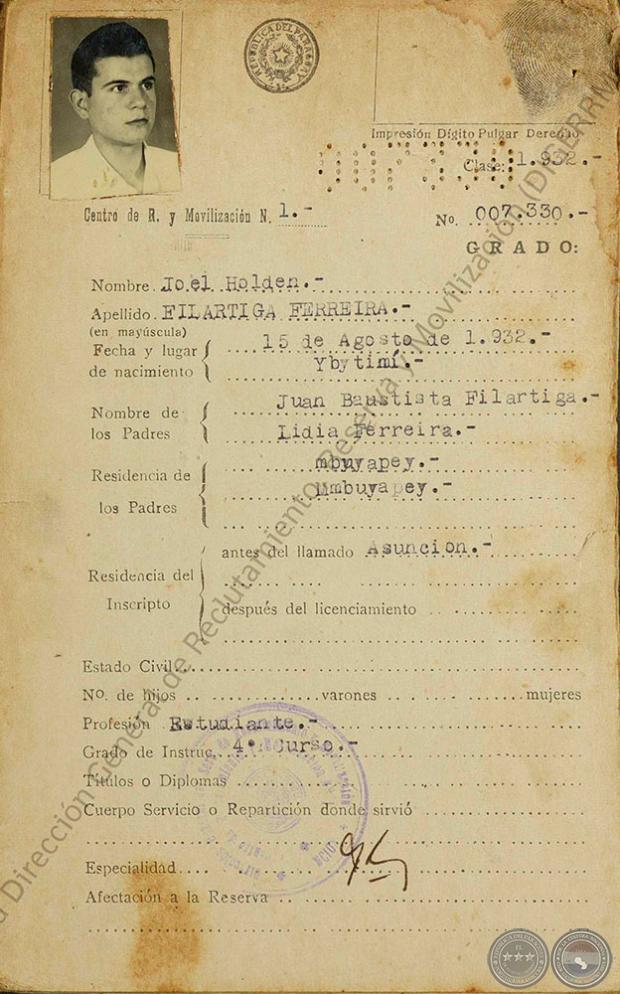 REPUBLICA DEL PARAGUAY
Impresión Dígito Pulgar Derecho
Clase: 1.932.-
Centro de R. y Movilización N. 1.-
No. 007.330.-
GRADO:
Nombre. Joel Holden.-
Apellido. FILARTIGA FERREIRA.-
(en mayúscula)
Fecha y lugar de nacimiento
15 de Agosto de 1.932.-
Ybytimí.-
Nombre de los Padres
Juan Baustista Filartiga.-
Lidia Ferreira.-
Residencia de los Padres
mbuyapey.-
Mmbuyapey.-
Residencia del Inscripto
antes del llamado Asuncion.-
después del licenciamiento
Estado Civil
No. de hijos varones mujeres
Profesión Estudiante.-
Grado de Instruc. 4º Curso.-
Títulos o Diplomas
Cuerpo Servicio o Repartición donde sirvió
Especialidad
Afectación a la Reserva
Dirección General de Reclutamiento Reserva y Movilización (DIGERRMOV